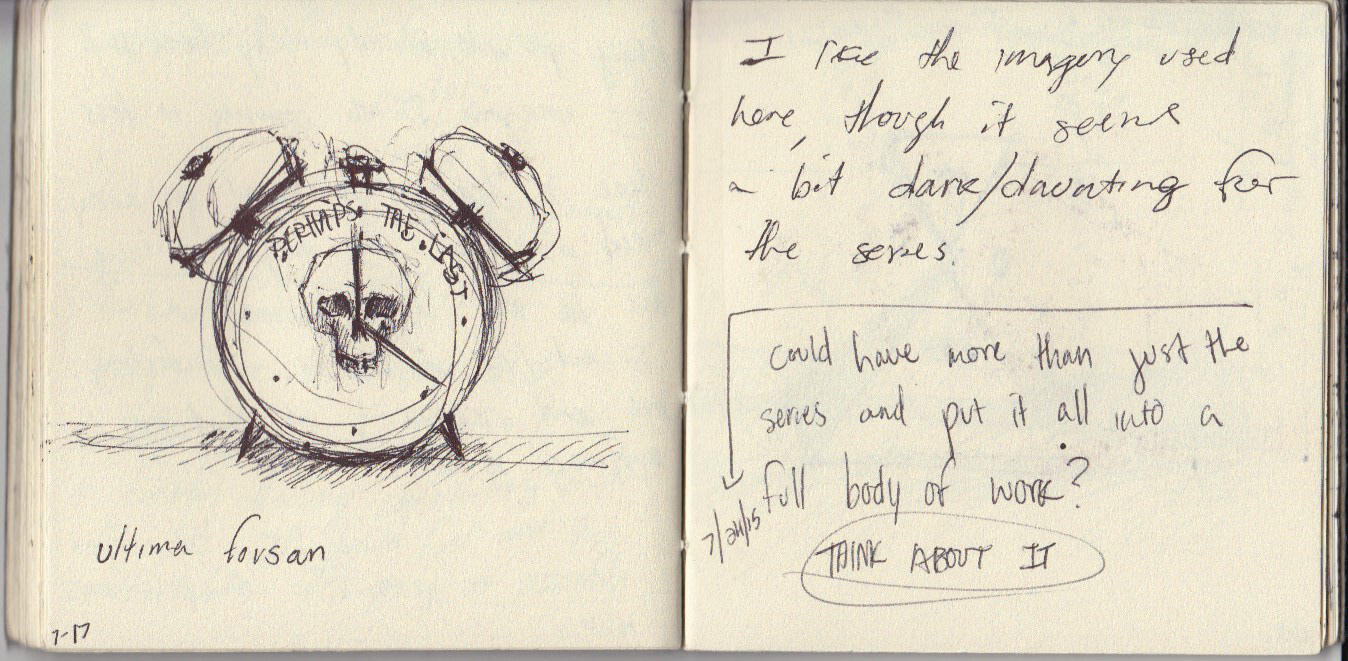 PERHAPS THE LAST
ultima forsan
7-17
I like the imagery used
here, though it seems
a bit dark/daunting for
the series.
could have more than just the
series and put it all into a
full body of work?
7/24/15
THINK ABOUT IT